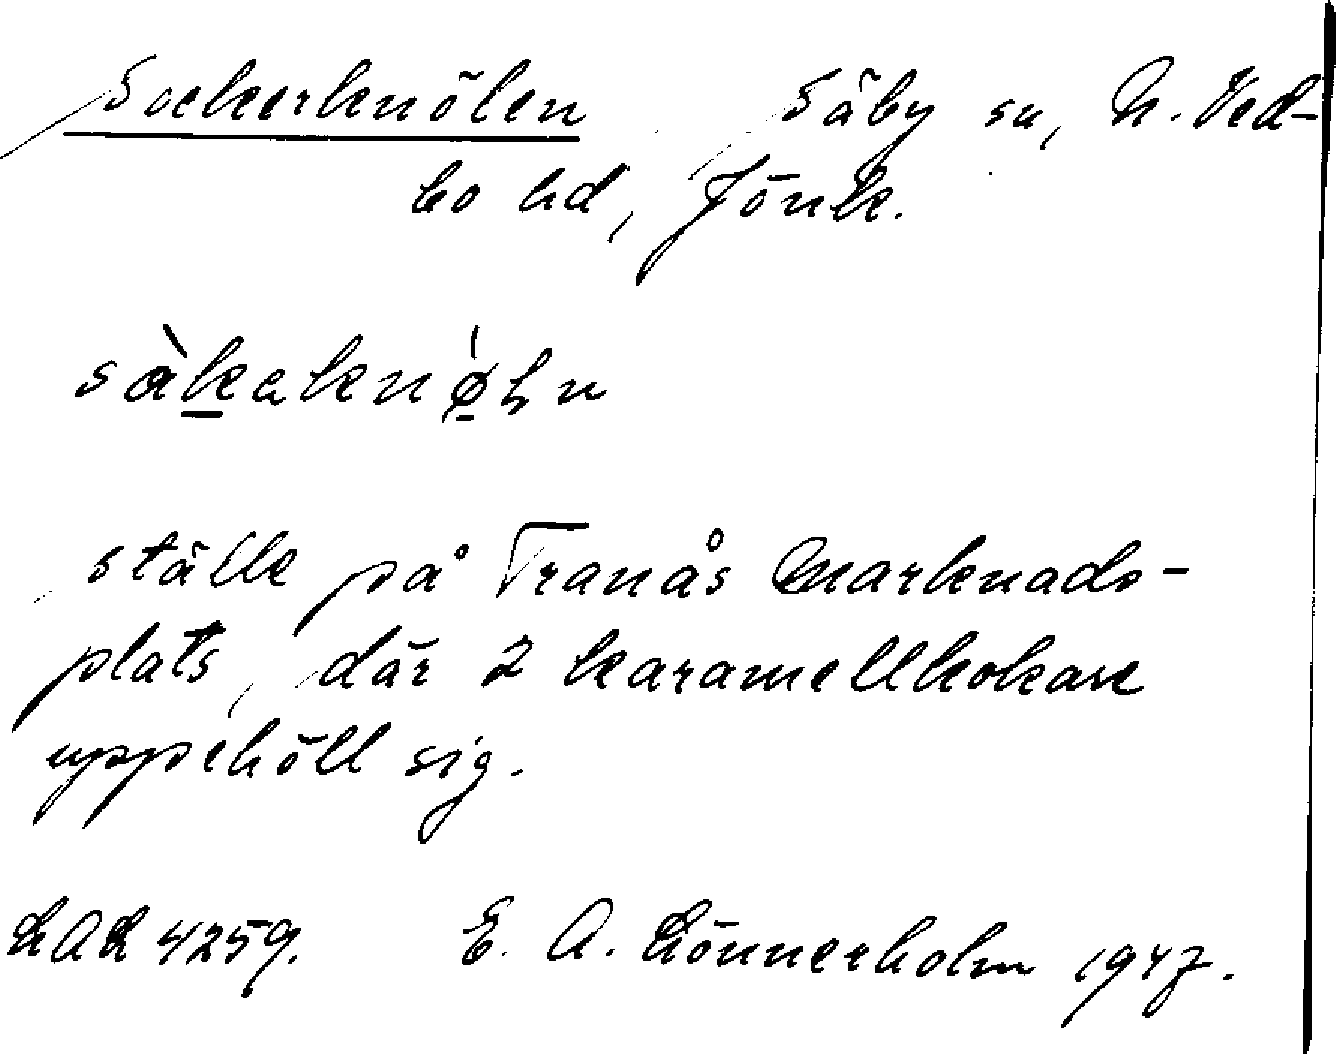 Sockerknölen Säby sn, N. Ved-
bo hd, Jönk.
ställe på Tranås Marknads-
plats, där 2 karamellkokare
uppehöll sig.
LAL 4259. E. A. Lönnerholm 1947.